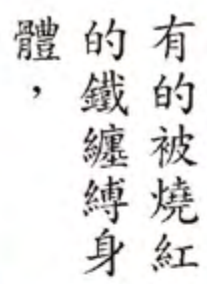 有的被燒紅
的鐵纏縛身
體，